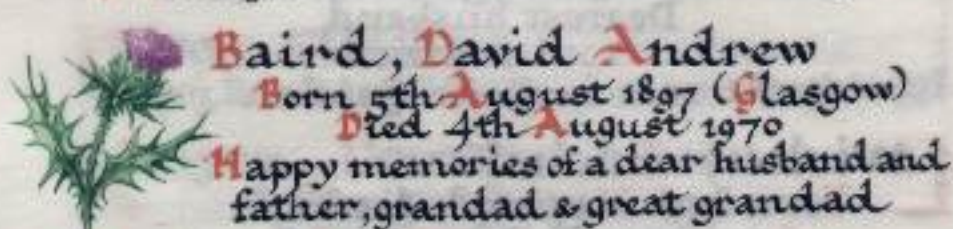 Baird, David Andrew
Born 5th August 1897 (Glasgow)
Died 4th August 1970
Happy memories of a dear husband and
father, grandad & great grandad